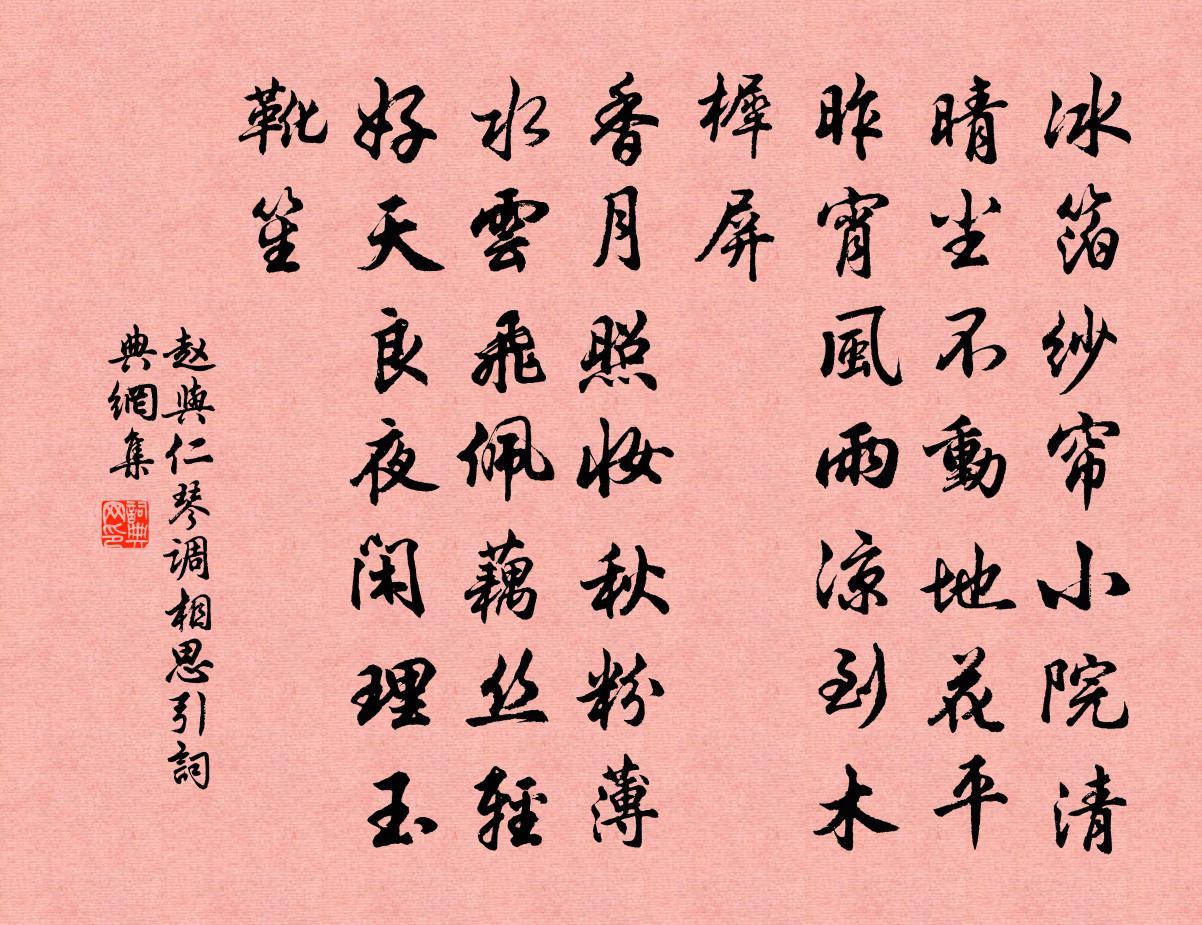 冰箔纱帘小院清
晴尘不動地花平
昨宵風雨凉到木
樨屏
香月照妆秋粉薄
水雲飛佩藕丝輕
好天良夜闲理玉
靴笙
赵與仁琴调相思引詞
典網集
詞典网印